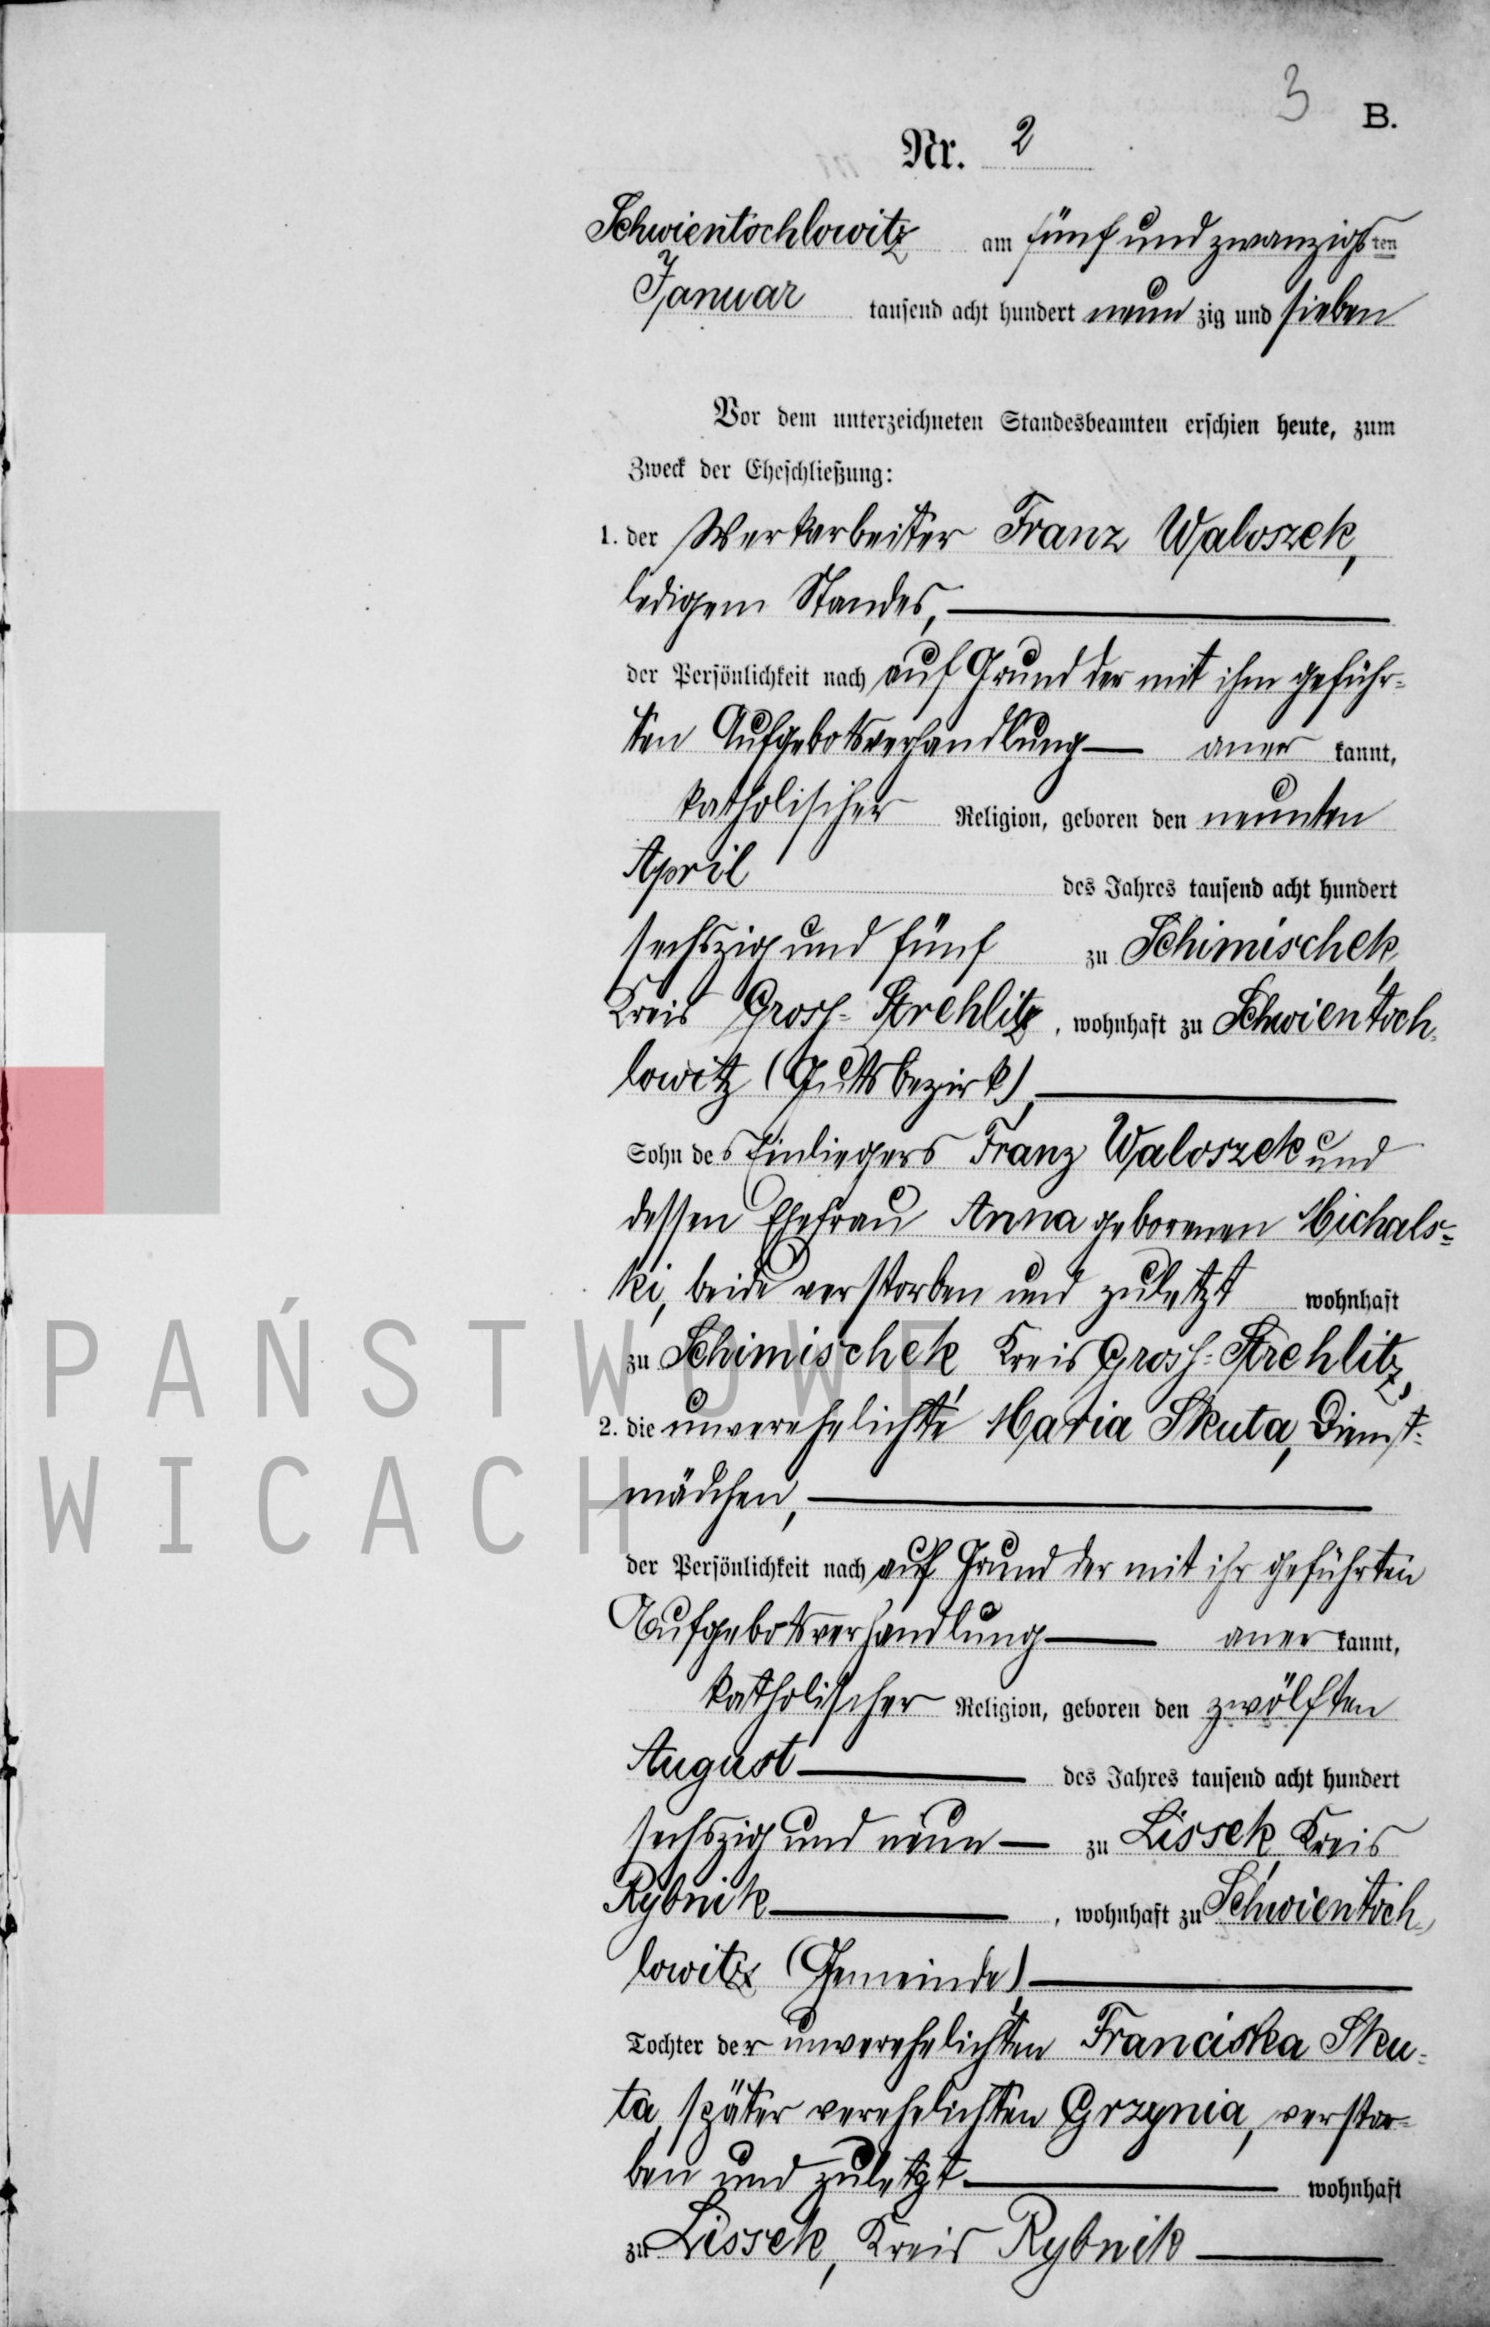 3
B.
Nr. 2
Schwientochlowitz am fünf und zwanzigsten
Januar tausend acht hundert neun zig und sieben
Vor dem unterzeichneten Standesbeamten erschien heute, zum
Zweck der Eheschließung:
1. der Werkarbeiter Franz Waloszek,
ledigem Standes,
der Persönlichkeit nach auf Grund der mit ihm geführ-
ten Aufgebotsverhandlung aner kannt,
katholischer Religion, geboren den neunten
April des Jahres tausend acht hundert
sechszig und fünf zu Schimischek,
Kreis Gross-Strehlitz, wohnhaft zu Schwientoch-
lowitz (Gutsbezirk),
Sohn des Einliegers Franz Waloszek und
dessen Ehefrau Anna geborenen Michals-
ki, beide verstorben und zuletzt wohnhaft
zu Schimischek Kreis Gross-Strehlitz,
2. die unverehelichte Maria Skuta, Dienst-
mädchen,
der Persönlichkeit nach auf Grund der mit ihr geführten
Aufgebotsverhandlung aner kannt,
katholischer Religion, geboren den zwölften
August des Jahres tausend acht hundert
sechszig und neun zu Lissek, Kreis
Rybnik, wohnhaft zu Schwientoch-
lowitz (Gemeinde),
Tochter der unverehelichten Franciska Sku-
ta, später verehelichten Grzynia, verstor-
ben und zuletzt wohnhaft
zu Lissek, Kreis Rybnik
PAŃSTWOWE
WICACH